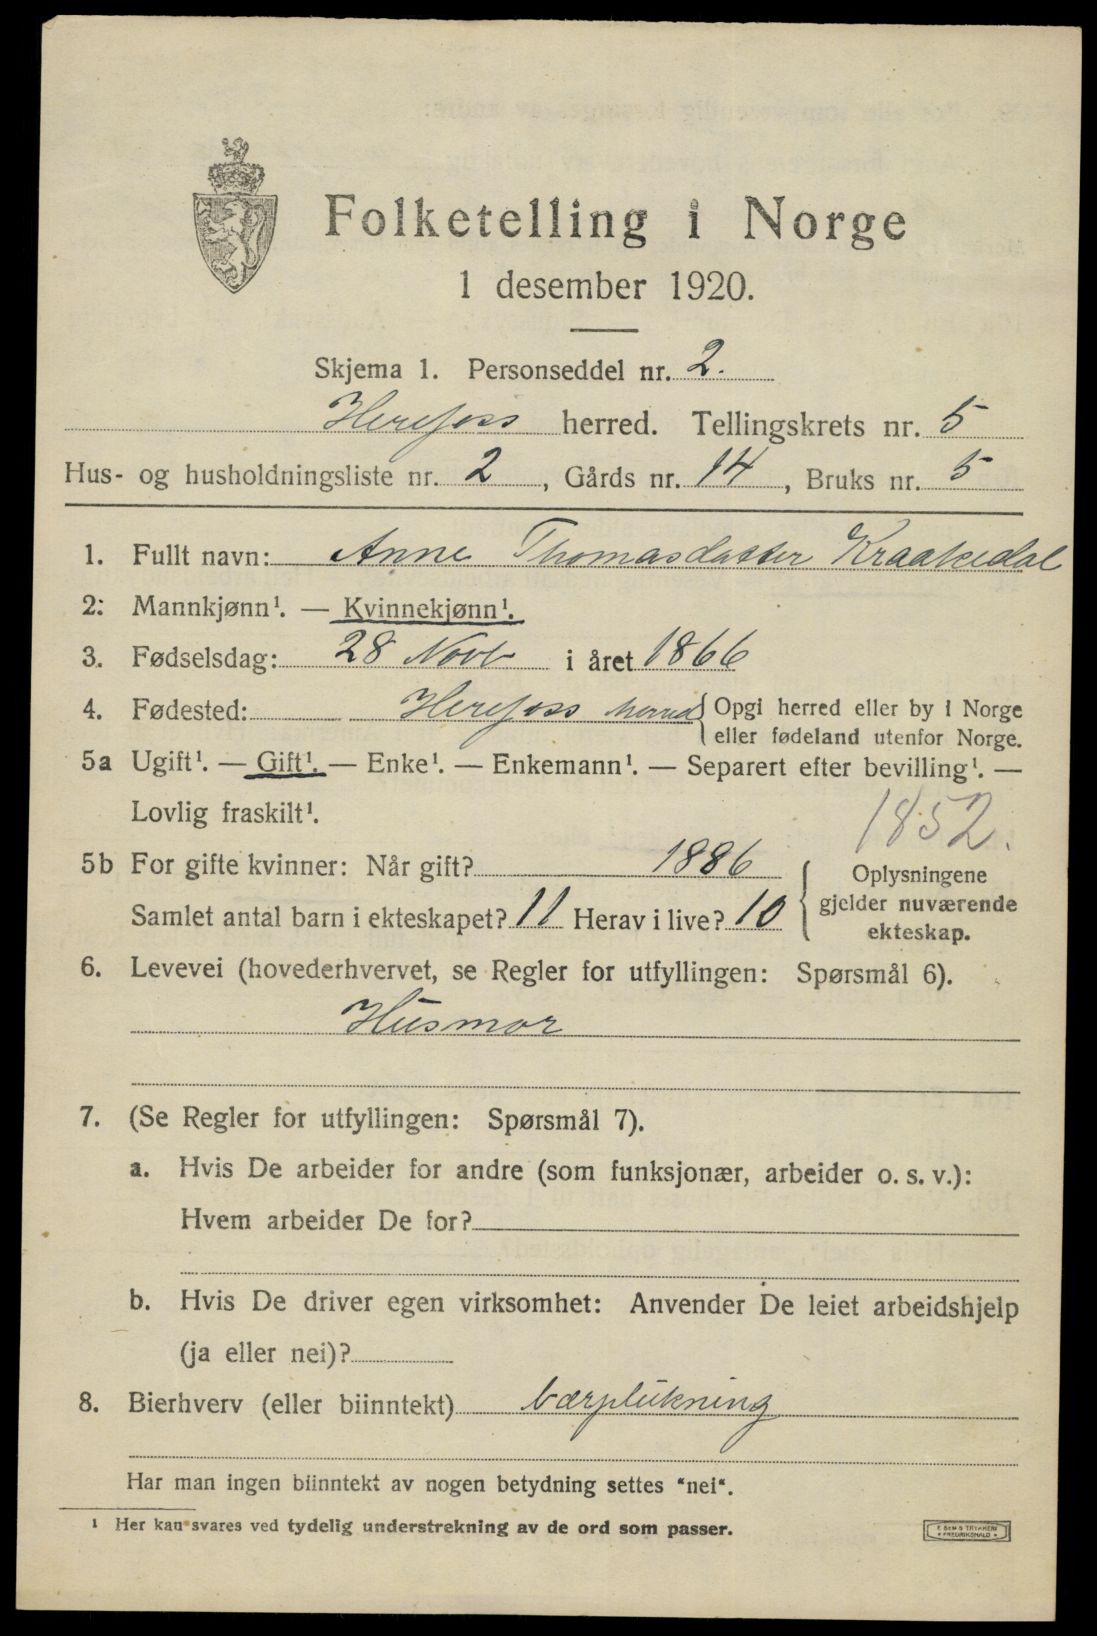 Folketelling i Norge
1 desember 1920.
Skjema 1. Personseddel nr. 2.
Herefoss herred. Tellingskrets nr. 5
Hus- og husholdningsliste nr. 2, Gårds nr. 14, Bruks nr. 5
1. Fullt navn: Anne Thomasdatter Kraakedal
2: Mannkjønn¹. — Kvinnekjønn¹.
3. Fødselsdag: 28 Novb i året 1866
4. Fødested: Herefoss herred { Opgi herred eller by i Norge
eller fødeland utenfor Norge.
5a Ugift¹. — Gift¹. — Enke¹. — Enkemann¹. — Separert efter bevilling¹. —
Lovlig fraskilt¹.
1852.
5b For gifte kvinner: Når gift? 1886
Samlet antal barn i ekteskapet? 11 Herav i live? 10
Oplysningene
gjelder nuværende
ekteskap.
6. Levevei (hovederhvervet, se Regler for utfyllingen: Spørsmål 6).
Husmor
7. (Se Regler for utfyllingen: Spørsmål 7).
a. Hvis De arbeider for andre (som funksjonær, arbeider o. s. v.):
Hvem arbeider De for?
b. Hvis De driver egen virksomhet: Anvender De leiet arbeidshjelp
(ja eller nei)?
8. Bierhverv (eller biinntekt) bærplukning
Har man ingen biinntekt av nogen betydning settes "nei".
¹ Her kan svares ved tydelig understrekning av de ord som passer.